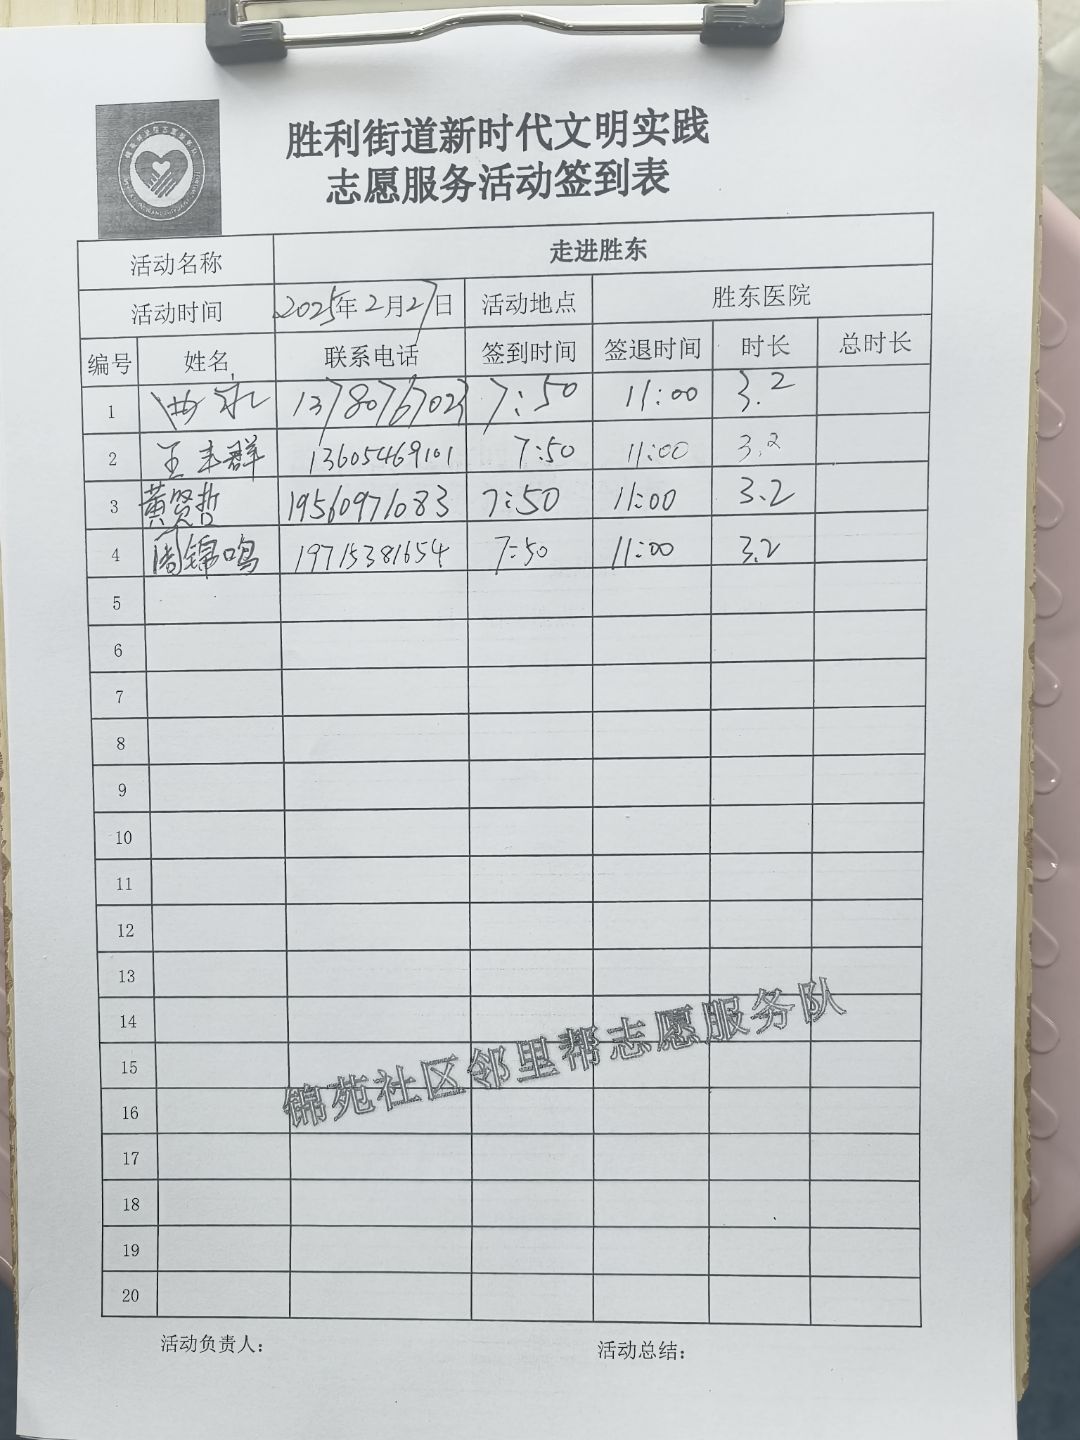 胜利街道新时代文明实践
志愿服务活动签到表
活动名称 走进胜东
活动时间 2025年2月27日 活动地点 胜东医院
编号 姓名 联系电话 签到时间 签退时间 时长 总时长
1 13780767023 7:50 11:00 3.2
2 王丰群 13605469101 7:50 11:00 3.2
3 黄贤哲 19560971083 7:50 11:00 3.2
4 周锦鸣 19715381654 7:50 11:00 3.2
5
6
7
8
9
10
11
12
13
14
15
16
17
18
19
20
锦苑社区邻里帮志愿服务队
活动负责人： 活动总结：